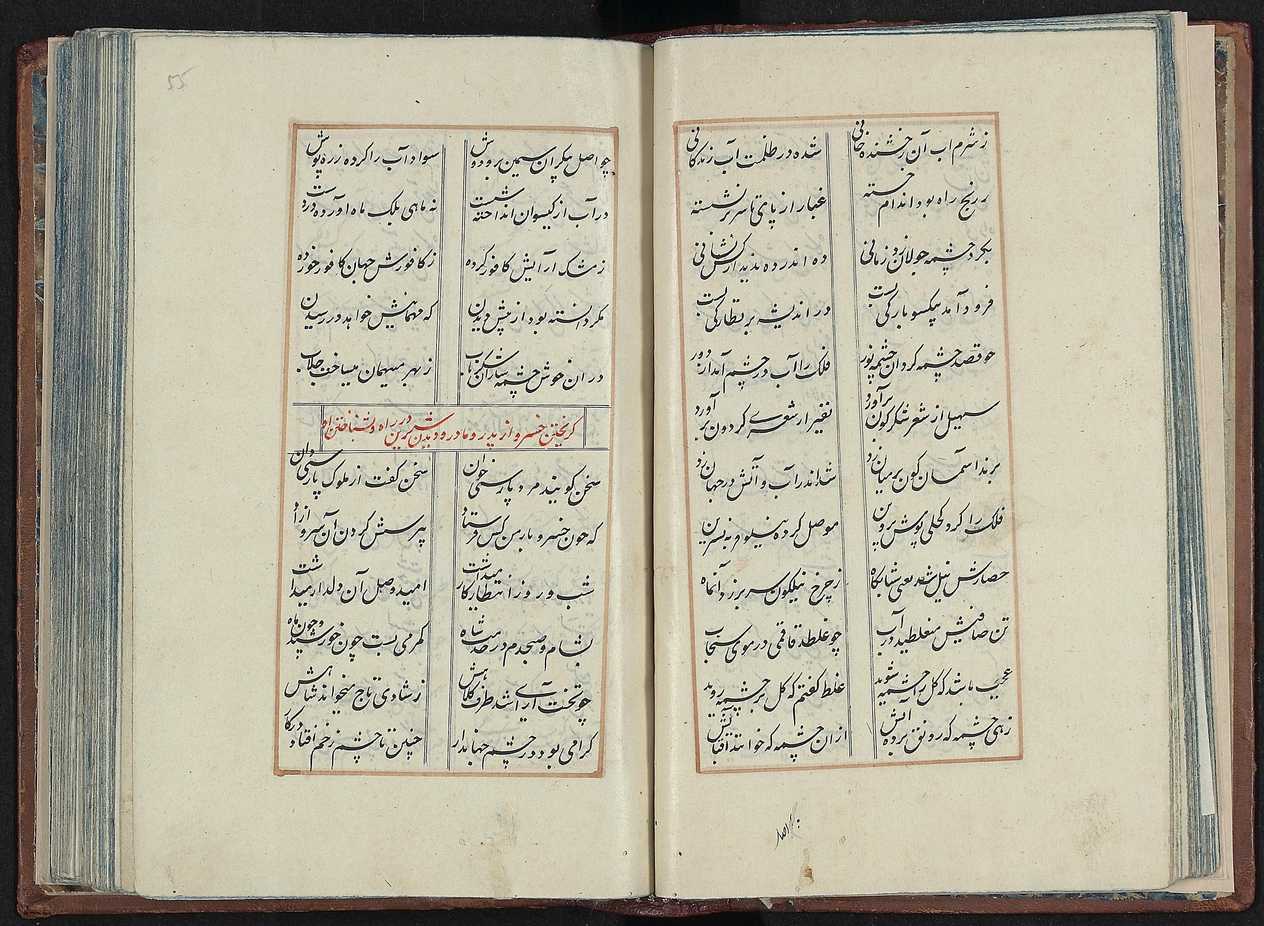 ز شرم آب آن رخشنده خانی شده در ظلمت آب زندگانی
ز رنج راه بود اندام خسته غبار از پای تا سر برنشسته
بگرد چشمه جولان زد زمانی ده اندر ده ندید از کس نشانی
فرود آمد بیکسو بارگی بست در اندیشه بر نظارگی بست
چو قصد چشمه کرد آن چشمه نور فلک را آب در چشم آمد از دور
سهیل از شعر شکرگون برآورد نفیر از شعری گردون برآورد
پرند آسمان گون بر میان زد شد اندر آب و آتش در جهان زد
فلک را کرد کحلی پوش پروین موصل کرد نیلوفر به نسرین
حصارش نیل شد یعنی شبانگاه ز چرخ نیلگون سر برزد آن ماه
تن صافیش میغلطید در آب چو غلطد قاقمی در موی سنجاب
عجب باشد که گل را چشمه شوید غلط گفتم که گل بر چشمه روید
زهی چشمه که رونق برده آتش از آن چشمه که خوانند آفتابش
چو اصل پیکر آن سیمین برودوش سواد آب را کرده زره پوش
در آب از گیسوان انداخته شست نه ماهی بلک ماه آورده در دست
ز مشک آرایش کافور کرده ز کافورش جهان کافور خورده
مگر دانسته بود از پیش دیدن که مهمانیش خواهد در رسیدن
در آن خوش چشمه ز بهر میهمان میساخت جلاب
گریختن خسرو از پدر و مادر و دیدن شیرین در راه و نشناختن او
سخن گوینده مرد پارسی خوان سخن گفت از ملوک پارسی دان
که چون خسرو بارمن کس فرستاد بپرسش کردن آن سرو آزاد
شب و روز انتظار کار میداشت امید وصل آن دلدار میداشت
بشام و صبحدم در خدمت شاه کمر می بست چون خورشید و چون ماه
چو تخت آرای شد طرف کلاهش ز شادی تاج سر میخواند شاهش
گرامی بود در چشم جهاندار چنین تا چشم زخم افتاد در کار